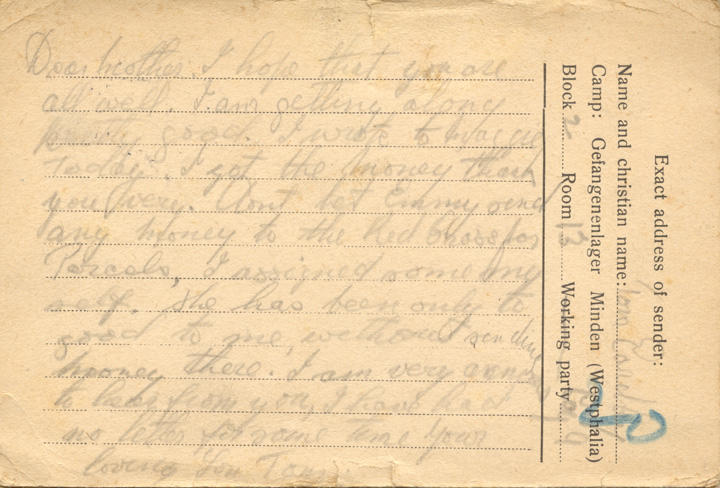 Dear mother. I hope that you are
all well. I am getting along
pretty good. I wrote to Maggie
Today. I got the money thank
you very. Dont let Emmy send
any money to the Red Cross for
Parcels, I assigned some my
self. She has been only to
good to me, without sending
money there. I am very anxious
to hear from you, I have had
no letter for some time your
loving Son Tom
Exact address of sender:
Name and christian name: Tom
Camp: Gefangenenlager Minden (Westphalia)
Block 2 Room 13 Working party